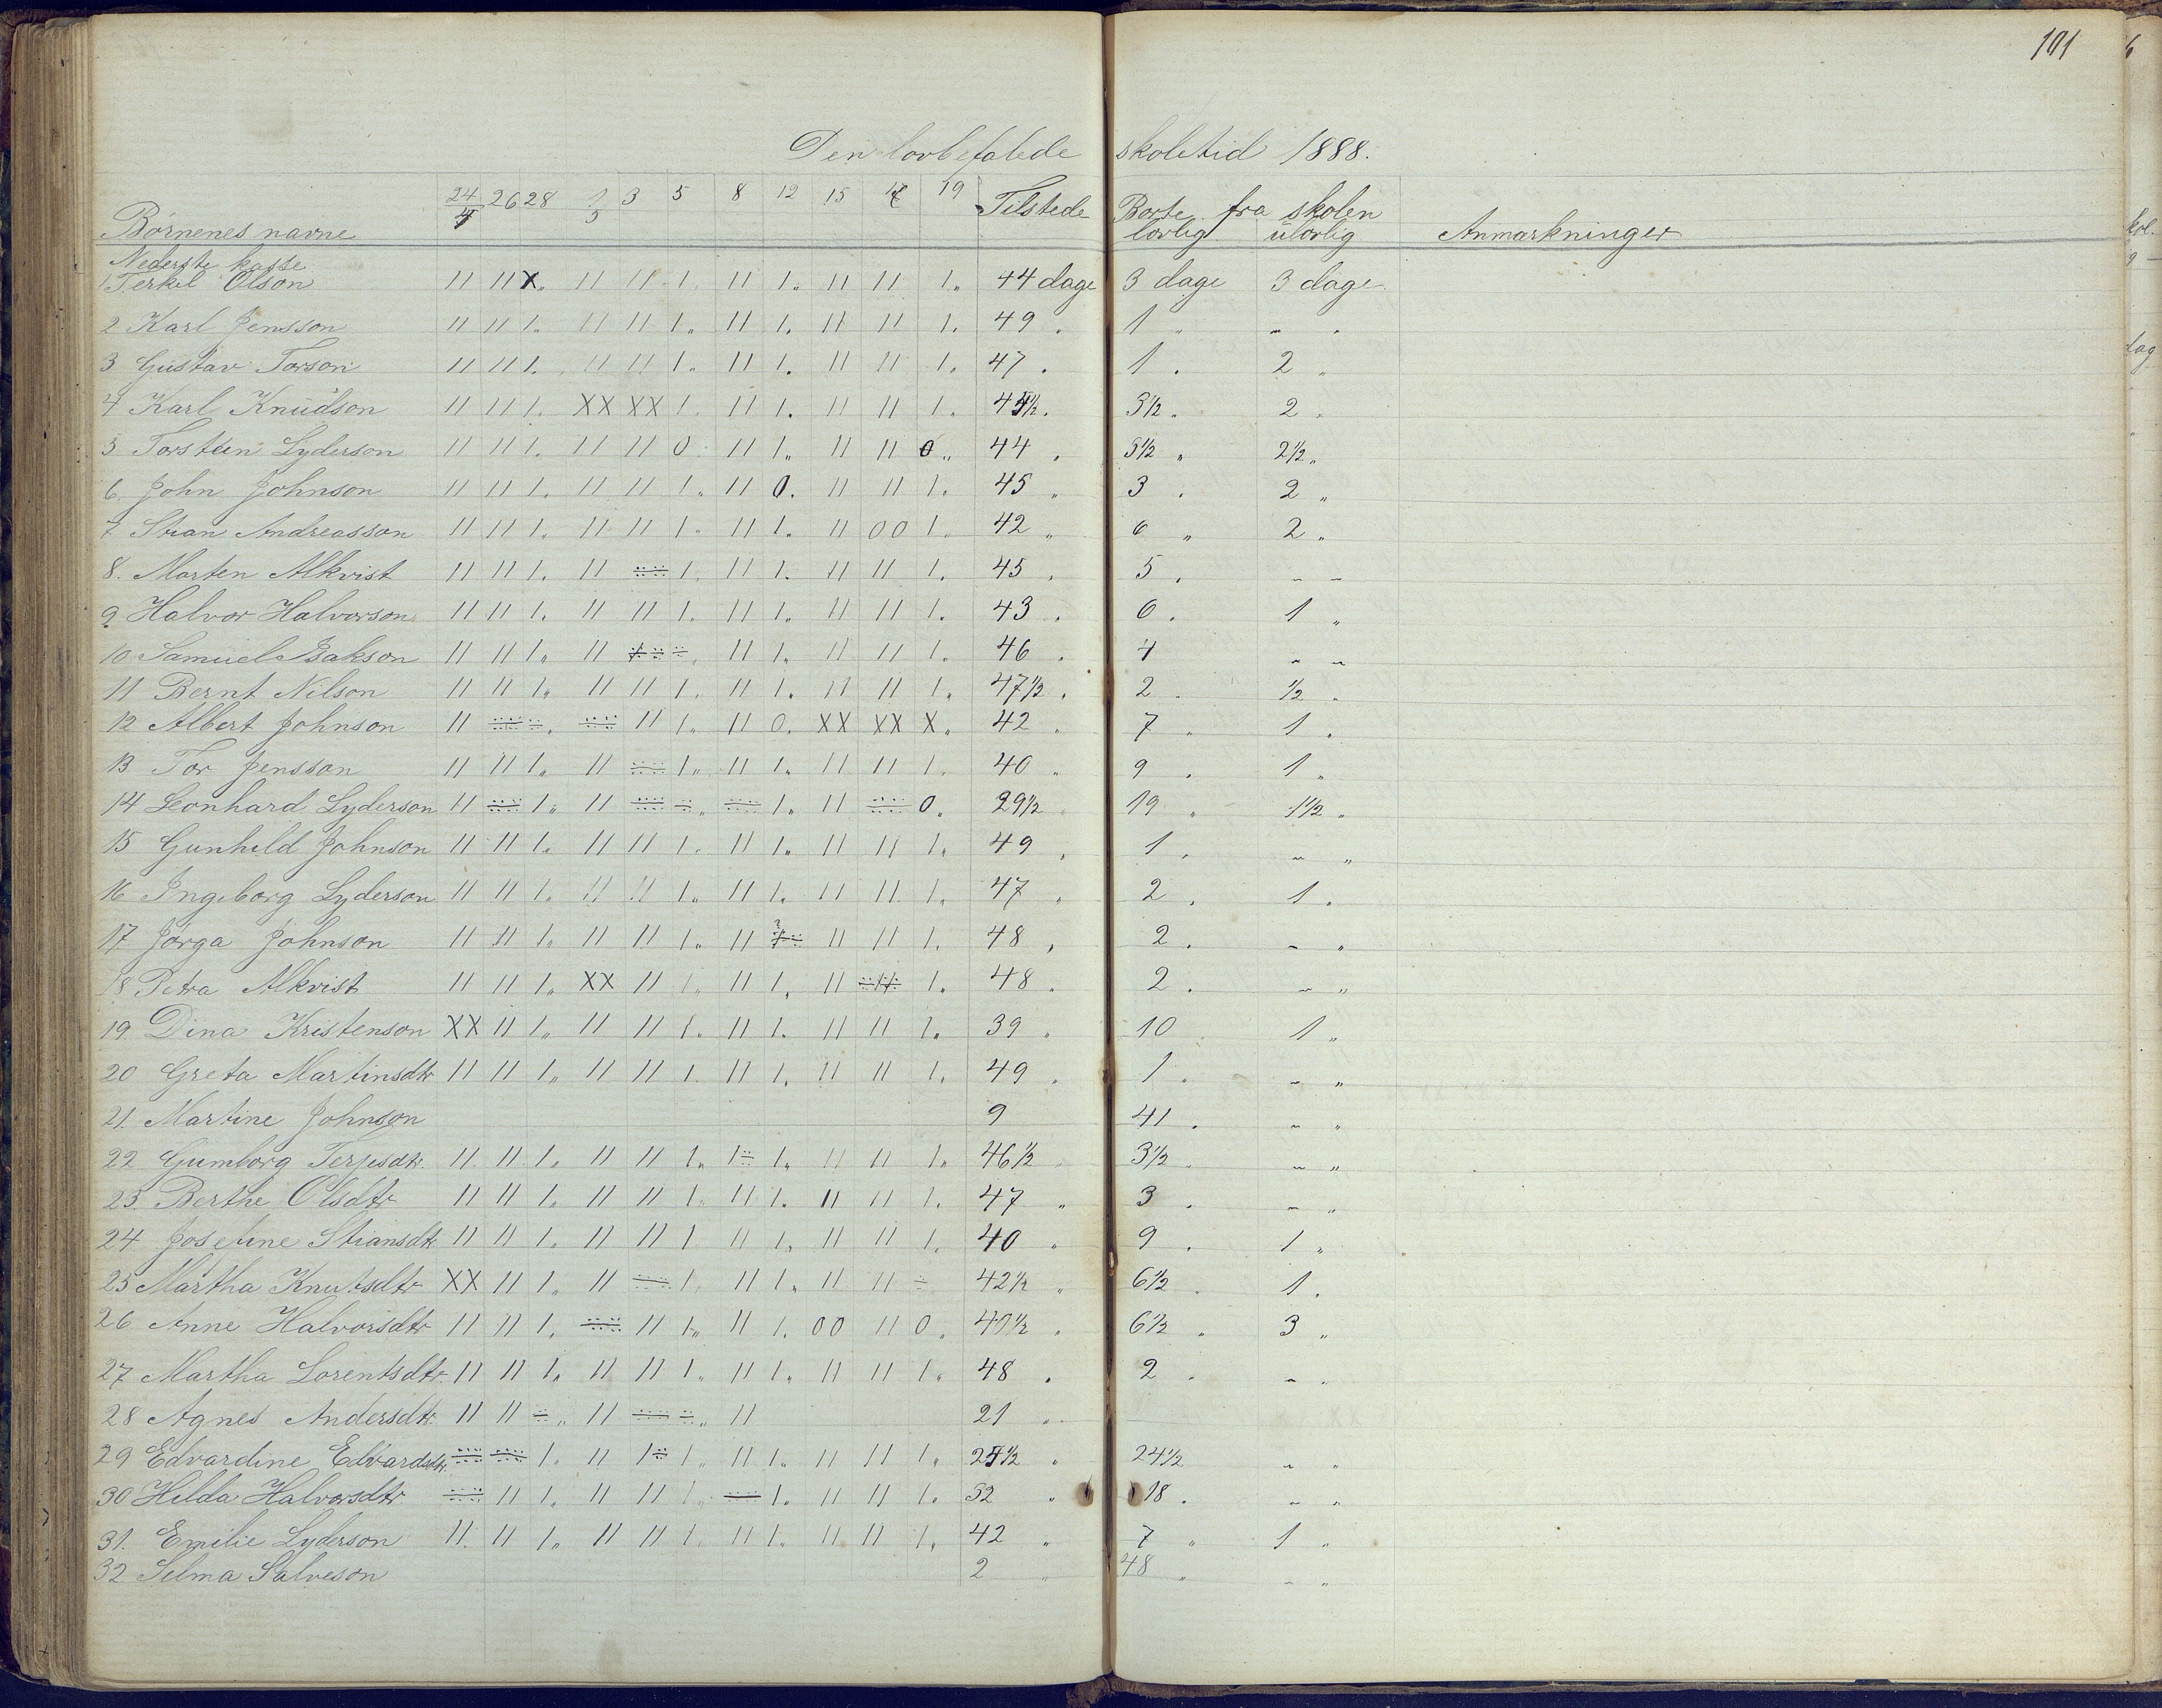 101
Den lovbefalede skoletid 1888.
Børnenes navne 24/4 26 28 1/5 3 5 8 12 15 17 19 Tilstede Borte fra skolen
lovlig ulovlig Anmærkninger
Nederste klasse
1 Terkel Olson 11 11 X„ 11 11 1. 11 1„ 11 11 1„ 44 dage 3 dage 3 dage
2 Karl Jensson 11 11 1„ 11 11 1„ 11 1. 11 11 1. 49 „ 1 „ „ „
3 Gustav Torson 11 11 1. 11 11 1„ 11 1. 11 11 1. 47 „ 1 „ 2 „
4 Karl Knudson 11 11 1. XX XX 1. 11 1. 11 11 1. 44½ „ 3½ „ 2 „
5 Torsten Lyderson 11 11 1. 11 11 0 11 1„ 11 11 0„ 44 „ 3½ „ 2½ „
6 John Johnson 11 11 1. 11 11 1„ 11 0. 11 11 1. 45 „ 3 „ 2 „
7 Stian Andreasson 11 11 1. 11 11 1. 11 1. 11 00 1. 42 „ 6 „ 2 „
8. Morten Alkvist 11 11 1. 11 ÷÷ 1. 11 1. 11 11 1. 45 „ 5 „ „ „
9 Halvor Halvorson 11 11 1. 11 11 1. 11 1. 11 11 1. 43 „ 6 „ 1 „
10 Samuel Isakson 11 11 1„ 11 ÷÷ ÷. 11 1„ 11 11 1. 46 „ 4 „ „
11 Bernt Nilson 11 11 1„ 11 11 1. 11 1. 11 11 1„ 47½ „ 2 „ ½ „
12 Albert Johnson 11 ÷÷ ÷. ÷÷ 11 1. 11 0. XX XX X„ 42 „ 7 „ 1 „
13 Tor Jensson 11 11 1„ 11 ÷÷ 1„ 11 1„ 11 11 1. 40 „ 9 „ 1 „
14 Leonhard Lyderson 11 ÷÷ 1„ 11 ÷÷ ÷„ ÷÷ 1„ 11 ÷÷ 0„ 29½ „ 19 „ 1½ „
15 Gunhild Johnson 11 11 1„ 11 11 1. 11 1„ 11 11 1„ 49 „ 1 „ „ „
16 Ingeborg Lyderson 11 11 1. 11 11 1„ 11 1. 11 11 1. 47 „ 2 „ 1 „
17 Jørga Johnson 11 11 1„ 11 11 1„ 11 ÷ 11 11 1. 48 „ 2 „ „ „
18 Petra Alkvist 11 11 1„ XX 11 1. 11 1. 11 11 1. 48 „ 2 „ „ „
19. Dina Kristenson XX 11 1„ 11 11 1„ 11 1. 11 11 1„ 39 „ 10 1 „
20 Greta Martinsdtr 11 11 1„ 11 11 1. 11 1. 11 11 1. 49 „ 1 „ „ „
21. Martine Johnson 9 41 „ „ „
22 Gumborg Terjesdtr. 11 11 1„ 11 11 1„ 1÷ 1„ 11 11 1„ 46½ „ 3½ „ „ „
23. Berthe Olsdtr 11 11 1„ 11 11 1. 11 1. 11 11 1. 47 „ 3 „ „ „
24 Josefine Stiansdtr 11 11 1„ 11 11 1 11 1. 11 11 1. 40 „ 9 „ 1 „
25 Martha Knutsdtr XX 11 1„ 11 ÷÷ 1. 11 1„ 11 11 ÷ 42½ „ 6½ „ 1 „
26 Anne Halvorsdtr 11 11 1. ÷÷ 11 1„ 11 1. 00 11 0„ 40½ „ 6½ „ 3 „
27 Martha Lorentsdtr 11 11 1„ 11 11 1. 11 1„ 11 11 1„ 48 „ 2 „ „ „
28 Agnes Andersdtr. 11 11 ÷„ 11 ÷÷ ÷„ 11 21 „
29 Edvardine Edvardsdtr. ÷÷ ÷÷ 1. 11 1÷ 1. 11 1„ 11 11 1„ 25½ „ 24½ „ „
30 Hilda Halvorsdtr ÷÷ 11 1„ 11 11 1„ ÷÷ 1„ 11 11 1. 32 „ 18 „ „ „
31. Emilie Lyderson 11. 11 1„ 11 11 1. 11 1. 11 11 1. 42 „ 7 „ 1 „
32 Selma Salveson 2 „ 48 „ „ „